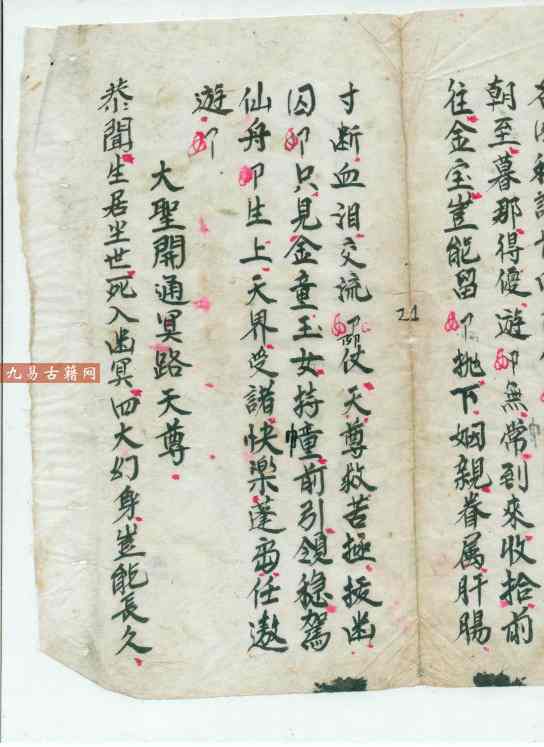 朝至暮那得優遊卬無常到來收拾前
往金宝豈能留卬抛下姻親眷属肝腸
21
寸断血泪交流卬仗天尊救苦極拔幽
囚卬只見金童玉女持幢前引領穏駕
仙舟卬生上天界受諸快楽蓬島任遨
遊卬
大聖開通冥路天尊
恭聞生居尘世死入幽冥四大幻身豈能長久
九易古籍网